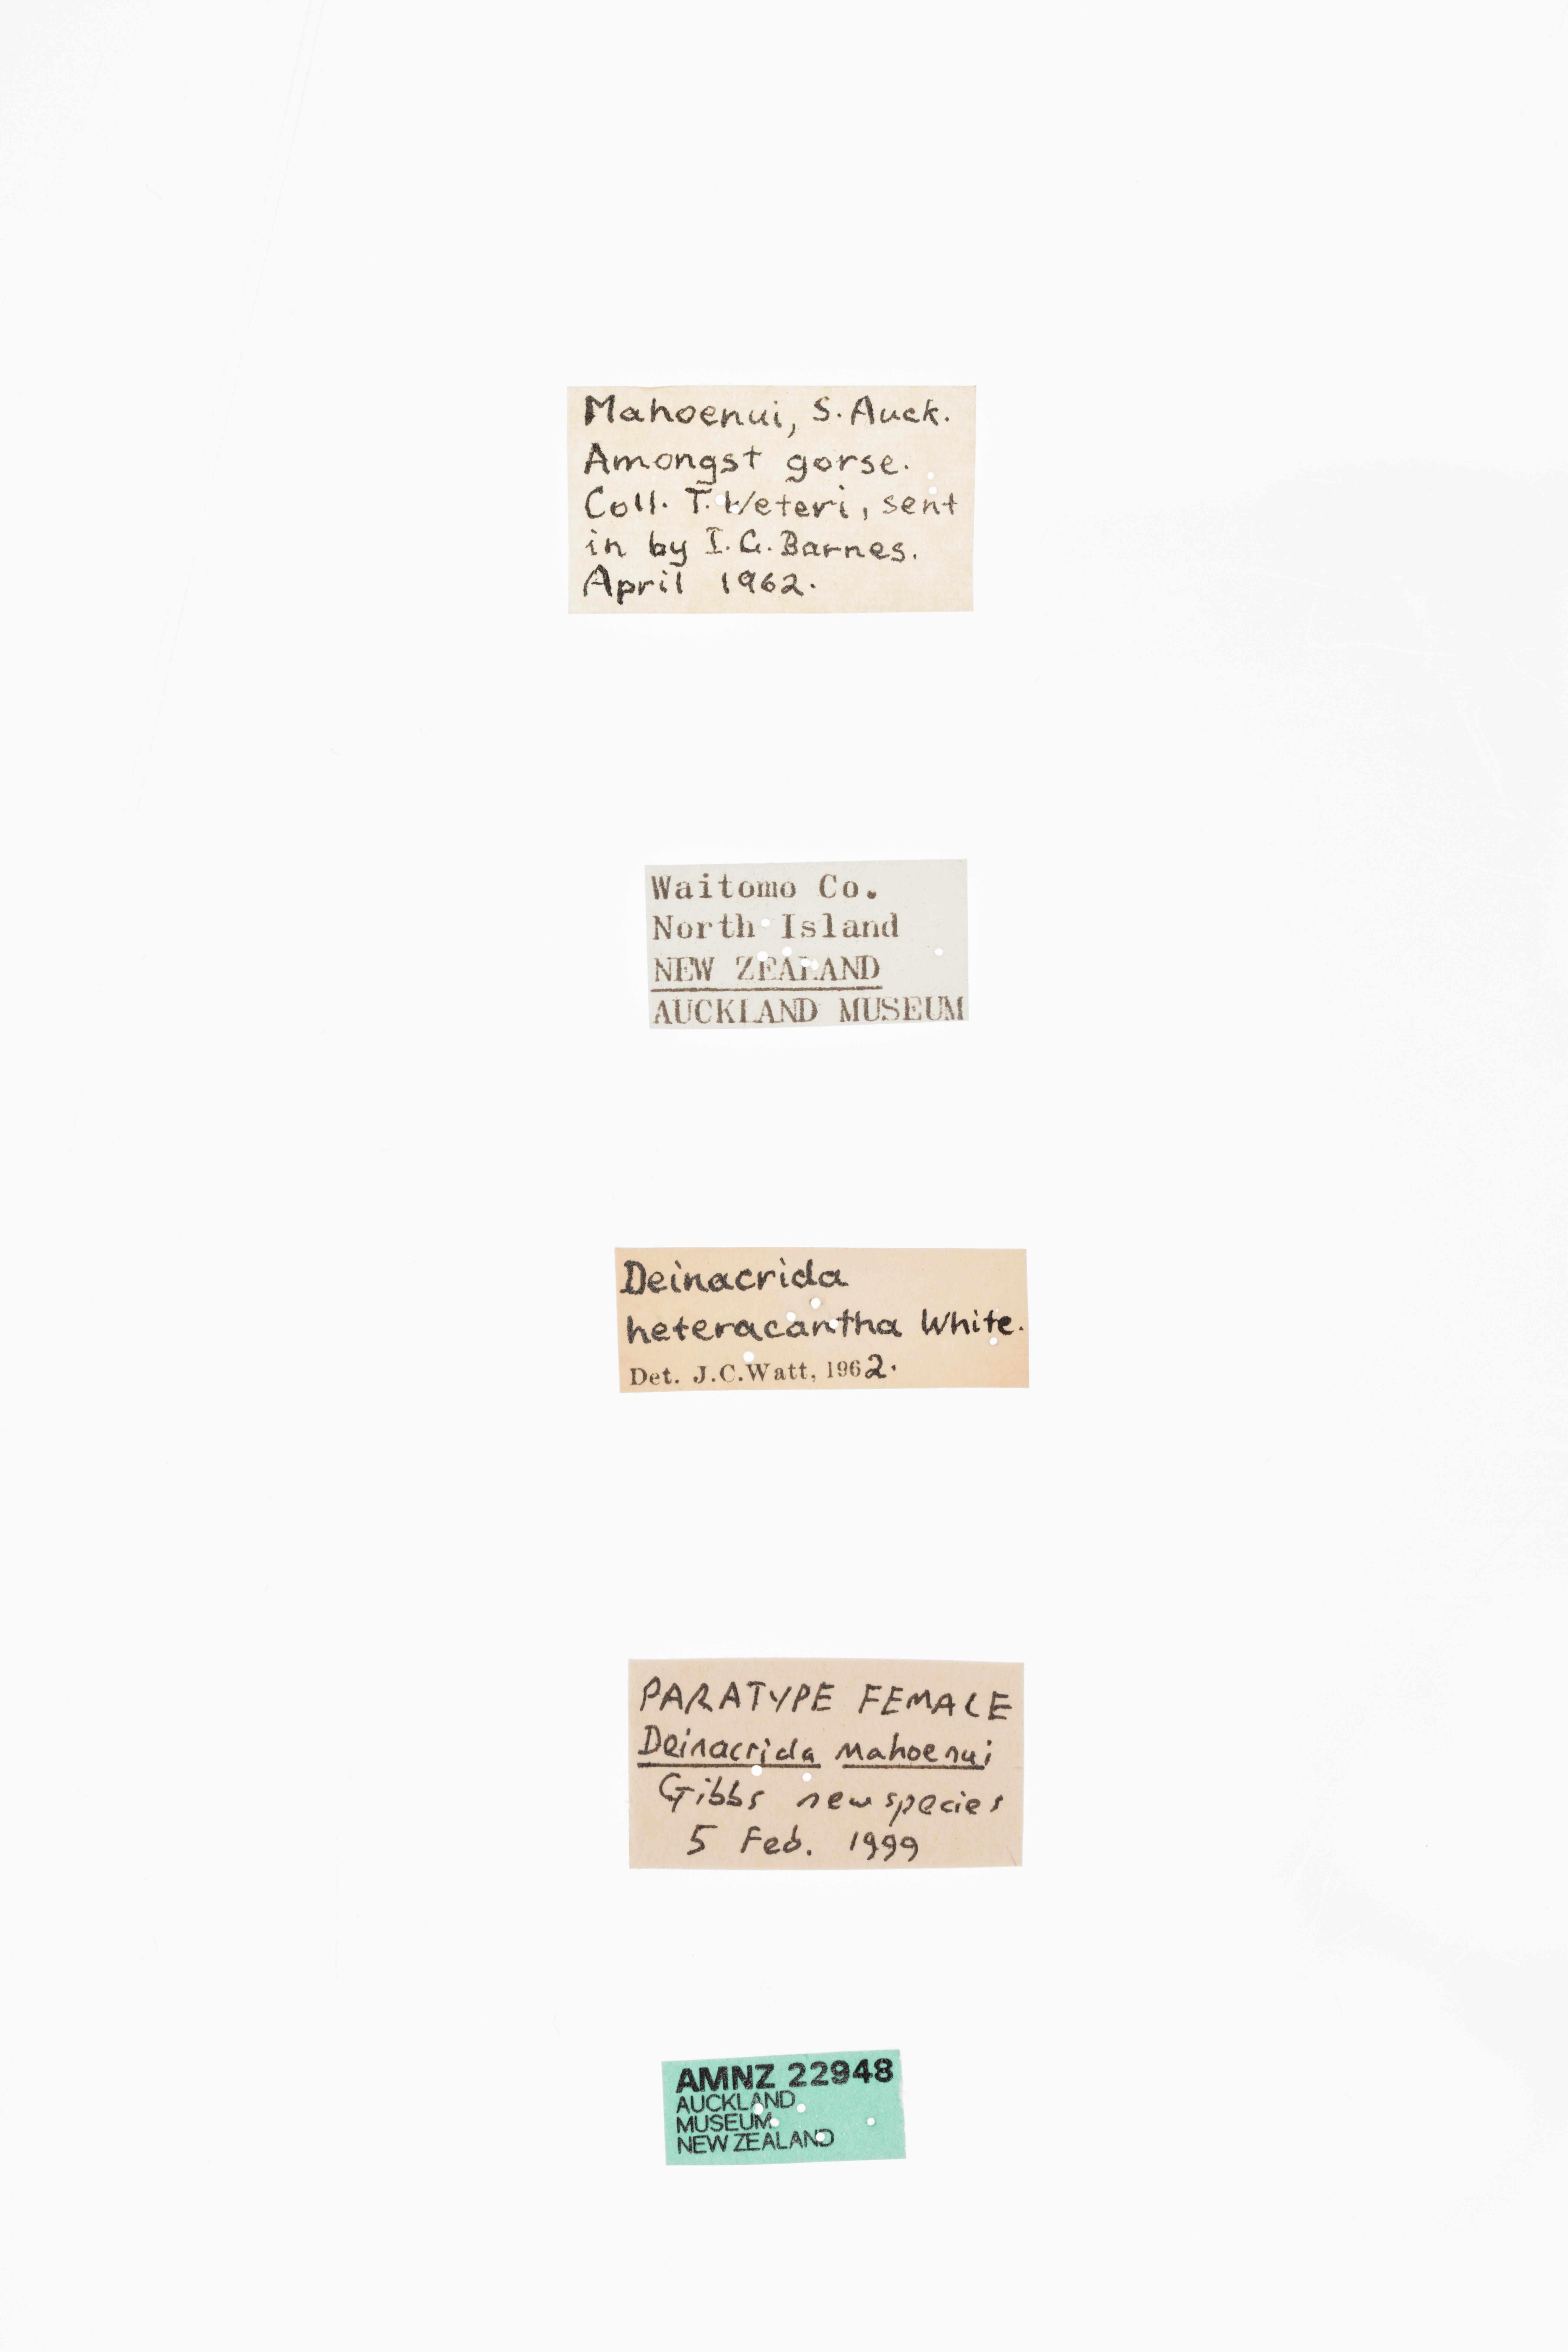 Mahoenui, S. Auck.
Amongst gorse.
Coll. T. Weteri, sent
in by I. G. Barnes.
April 1962.
Waitomo Co.
North Island
NEW ZEALAND
AUCKLAND MUSEUM
Deinacrida
heteracantha White.
Det. J.C.Watt, 1962.
PARATYPE FEMALE
Deinacrida mahoenui
Gibbs new species
5 Feb. 1999
AMNZ 22948
AUCKLAND
MUSEUM
NEW ZEALAND